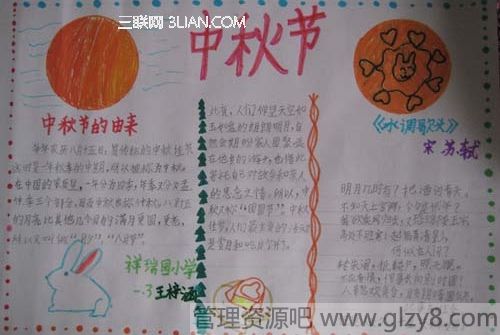 三联网 3LIAN.COM
中秋节
中秋节的由来
每年农历八月十五日,是传统的中秋佳节。
这时是一年秋季的中期,所以被称为中秋。
在中国的农历里,一年分为四季,每季又分为孟
仲、季三个部分,因而中秋也称仲秋。八月十五
的月亮比其他几个月的满月更圆,更亮,
所以又叫做“月夕”,“八月节”。
祥瑞园小学
一.3 王梓涵
此夜,人们仰望天空如
玉如盘的朗朗明月,自
然会期盼家人团聚。远
在他乡的游子,也借此
寄托自己对故乡和亲
人的思念之情。所以,中
秋又称“团圆节”。中秋
佳节,人们最主要的活动
是赏月和吃月饼了。
《水调歌头》
宋 苏轼
明月几时有?把酒问青天。
不知天上宫阙,今夕是何年?
我欲乘风归去,又恐琼楼玉宇,
高处不胜寒。起舞弄清影,
何似在人间?
转朱阁,低绮户,照无眠。
不应有恨,何事长向别时圆?
人有悲欢离合,月有阴晴圆缺
管理资源吧 www.glzy8.com